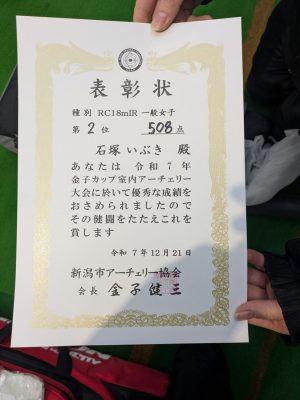 表彰状
種別 RC18mIR 一般女子
第 2 位 508点
石塚いぶき 殿
あなたは 令和7年
金子カップ室内アーチェリー
大会に於いて優秀な成績を
おさめられましたので
その健闘をたたえこれを
賞します
令和 7年12月21日
新潟市アーチェリー協会
会長 金子健三